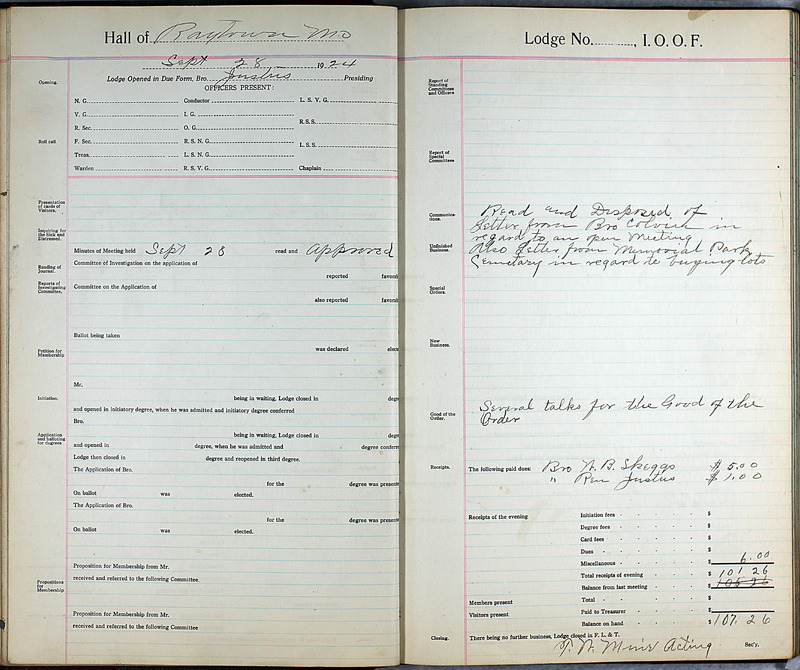 Hall of Raytown Mo
Sept 28 1924
Opening.
Lodge Opened in Due Form, Bro. Justus Presiding
OFFICERS PRESENT:
N. G. Conductor L. S. V. G.
V. G. I. G.
R. S. S.
R. Sec. O. G.
Roll call
F. Sec. R. S. N. G.
L. S. S.
Treas. L. S. N. G.
Warden R. S. V. G. Chaplain
Presentation of cards of Visitors.
Inquiring for the Sick and Distressed.
Minutes of Meeting held Sept 28 read and Approved
Reading of Journal.
Committee of Investigation on the application of
reported favora
Reports of Investigating Committee.
Committee on the Application of
also reported favora
Ballot being taken
Petition for Membership
was declared elec
Mr.
Initiation.
being in waiting, Lodge closed in deg
and opened in initiatory degree, when he was admitted and initiatory degree conferred
Bro.
Application and balloting for degrees
being in waiting, Lodge closed in deg
and opened in degree, when he was admitted and degree confer
Lodge then closed in degree and reopened in third degree.
The Application of Bro.
for the degree was presen
On ballot was elected.
The Application of Bro.
for the degree was presen
On ballot was elected.
Proposition for Membership from Mr.
received and referred to the following Committee.
Propositions for Membership
Proposition for Membership from Mr.
received and referred to the following Committee
Lodge No. , I. O. O. F.
Report of Standing Committees and Officers
Report of Special Committees
Communications.
Read and Disposed of
letter from Bro in
regard to an open meeting
Unfinished Business.
Also letter from Memorial Park
Cemetary in regard to buying lots
Special Orders.
New Business.
Good of the Order.
Several talks for the Good of the
Order
Receipts.
The following paid dues: Bro N. B. Skeggs $ 5.00
" Ren Justus $ 1.00
Receipts of the evening Initiation fees $
Degree fees $
Card fees $
Dues $
Miscellaneous $ 6.00
Total receipts of evening $ 101 26
Balance from last meeting $
Members present Total $
Visitors present Paid to Treasurer $
Balance on hand $ 107.26
Closing.
There being no further business, Lodge closed in F. L. & T.
Acting Sec'y.